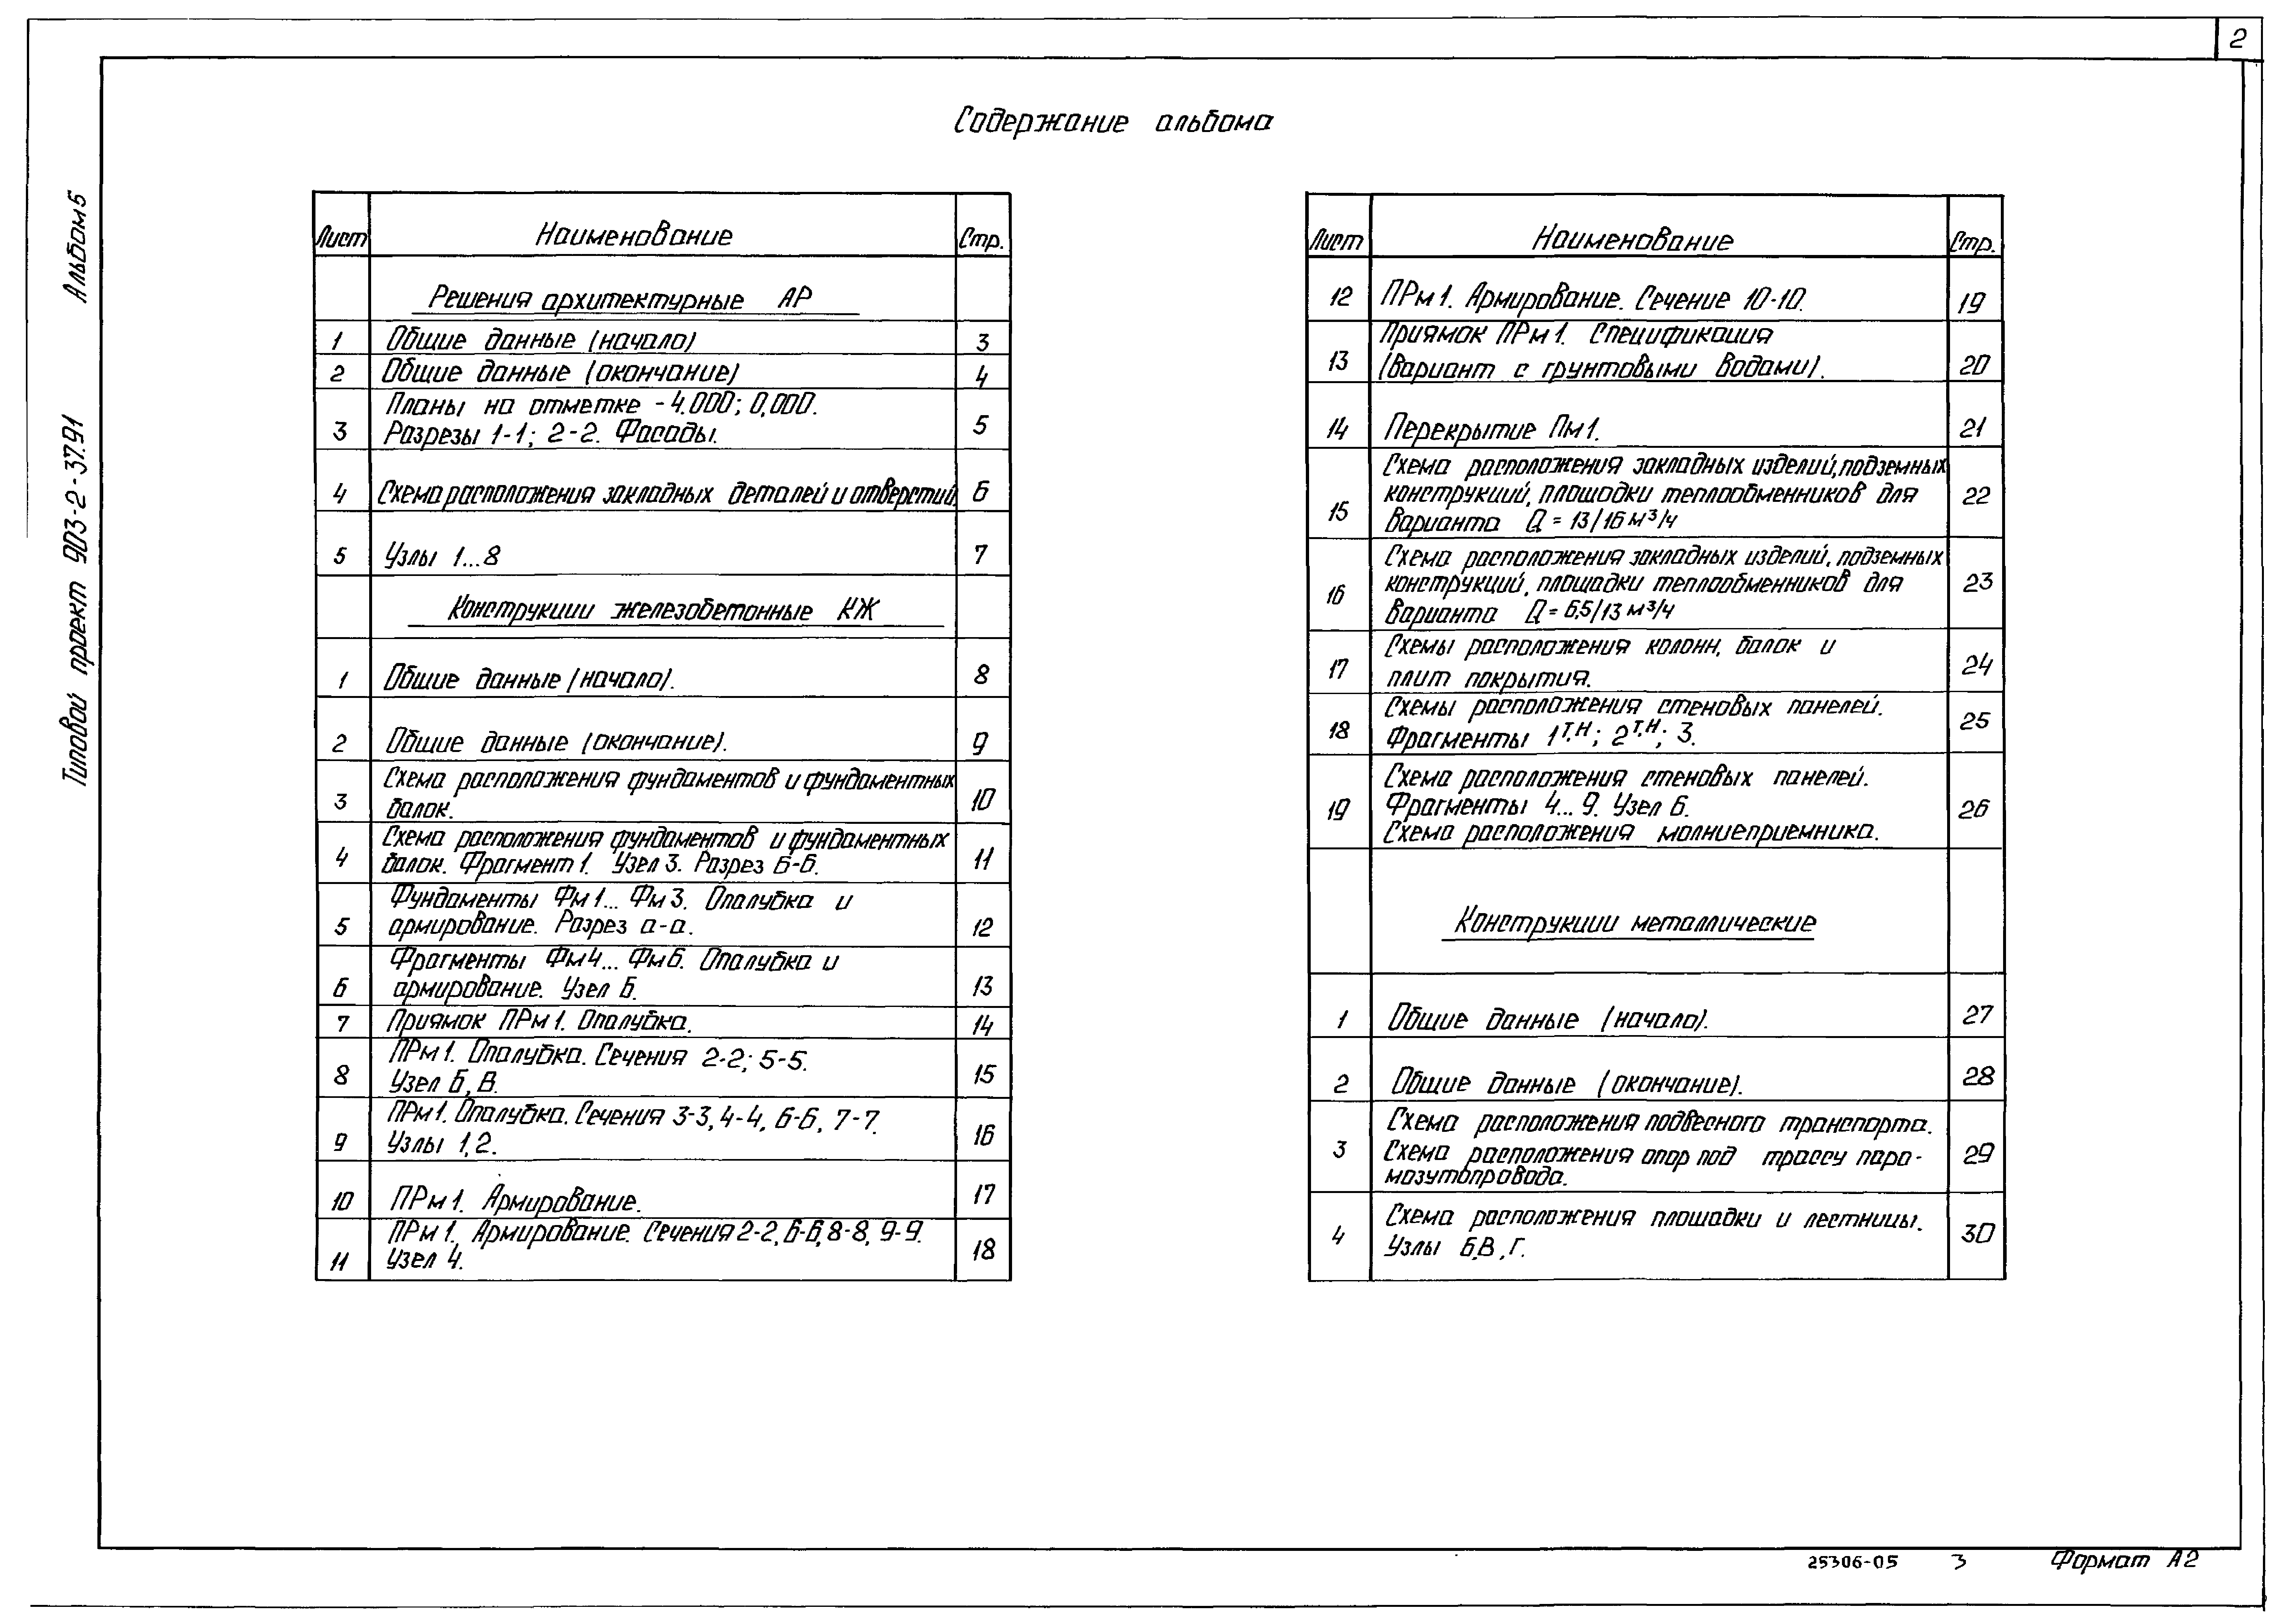 2
Содержание альбома
Типовой проект 903-2-37.91 Альбом 5
Лист Наименование Стр.
Решения архитектурные АР
1 Общие данные (начало) 3
2 Общие данные (окончание) 4
3 Планы на отметке -4.000; 0,000.
Разрезы 1-1; 2-2. Фасады. 5
4 Схема расположения закладных деталей и отверстий. 6
5 Узлы 1...8 7
Конструкции железобетонные КЖ
1 Общие данные (начало). 8
2 Общие данные (окончание). 9
3 Схема расположения фундаментов и фундаментных
балок. 10
4 Схема расположения фундаментов и фундаментных
балок. Фрагмент 1. Узел 3. Разрез Б-Б. 11
5 Фундаменты Фм1... Фм3. Опалубка и
армирование. Разрез а-а. 12
6 Фрагменты Фм4... Фм6. Опалубка и
армирование. Узел Б. 13
7 Приямок ПРм1. Опалубка. 14
8 ПРм1. Опалубка. Сечения 2-2; 5-5.
Узел Б, В. 15
9 ПРм1. Опалубка. Сечения 3-3, 4-4, 6-6, 7-7.
Узлы 1,2. 16
10 ПРм1. Армирование. 17
11 ПРм1. Армирование. Сечения 2-2, 6-6, 8-8, 9-9.
Узел 4. 18
Лист Наименование Стр.
12 ПРм1. Армирование. Сечение 10-10. 19
13 Приямок ПРм1. Спецификация
(Вариант с грунтовыми водами). 20
14 Перекрытие Пм1. 21
15 Схема расположения закладных изделий, подземных
конструкций, площадки теплообменников для
варианта Q = 13/16 м³/ч 22
16 Схема расположения закладных изделий, подземных
конструкций, площадки теплообменников для
варианта Q = 6,5/13 м³/ч 23
17 Схемы расположения колонн, балок и
плит покрытия. 24
18 Схемы расположения стеновых панелей.
Фрагменты 1т,н; 2т,н; 3. 25
19 Схема расположения стеновых панелей.
Фрагменты 4... 9. Узел 6.
Схема расположения молниеприемника. 26
Конструкции металлические
1 Общие данные (начало). 27
2 Общие данные (окончание). 28
3 Схема расположения подвесного транспорта.
Схема расположения опор под трассу паро-
мазутопровода. 29
4 Схема расположения площадки и лестницы.
Узлы Б,В,Г. 30
25306-05 3 Формат А2